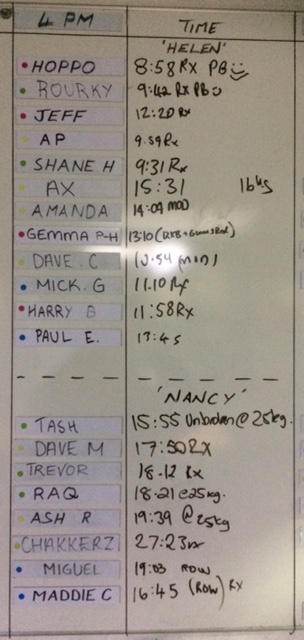 4 PM TIME
'HELEN'
HOPPO 8:58 RX PB
ROURKY 9:42 RX PB
JEFF 12:20 Rx
AP 9.59 Rx
SHANE H 9:31 Rx
AX 15:31 16kg
AMANDA 14:09 MOD
GEMMA P-H 13:10
DAVE C 10:54
MICK.G 11.10 Rx
HARRY B 11:58 Rx
PAUL E. 13:45
'NANCY'
TASH 15:55 Unbroken @ 25kg.
DAVE M 17:50 RX
TREVOR 18.12 Rx
RAQ 18.21 @25kg.
ASH R 19:39 @25kg
CHAKKERZ 27:23
MIGUEL 19:03 ROW
MADDIE C 16:45 (ROW) RX